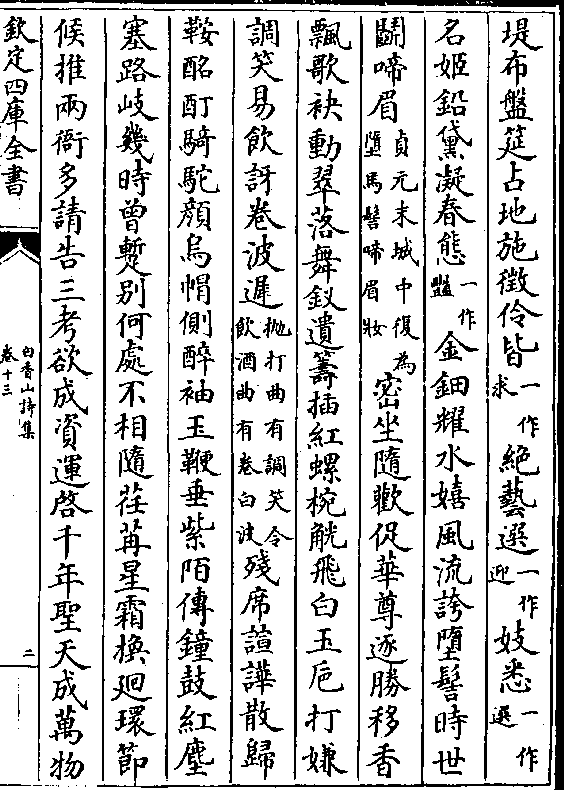 堤布盤筵占地施徵伶皆一作求絶藝選一作迎妓悉一作選
名姬鉛黛凝春態一作豔金鈿耀水嬉風流誇墮髻時世
鬬啼眉貞元末城中復為墮馬髻啼眉妝密坐隨歡促華尊逐勝移香
飄歌袂動翠落舞釵遺籌插紅螺椀觥飛白玉巵打嫌
調笑易飲訝卷波遲抛打曲有調笑令飲酒曲有卷白波殘席諠譁散歸
鞍酩酊騎駝顔烏帽側醉袖玉鞭垂紫陌傳鐘鼓紅塵
塞路岐幾時曾暫别何處不相隨荏苒星霜換廻環節
候推兩衙多請告三考欲成資運啓千年聖天成萬物
欽定四庫全書
白香山詩集
卷十三
二